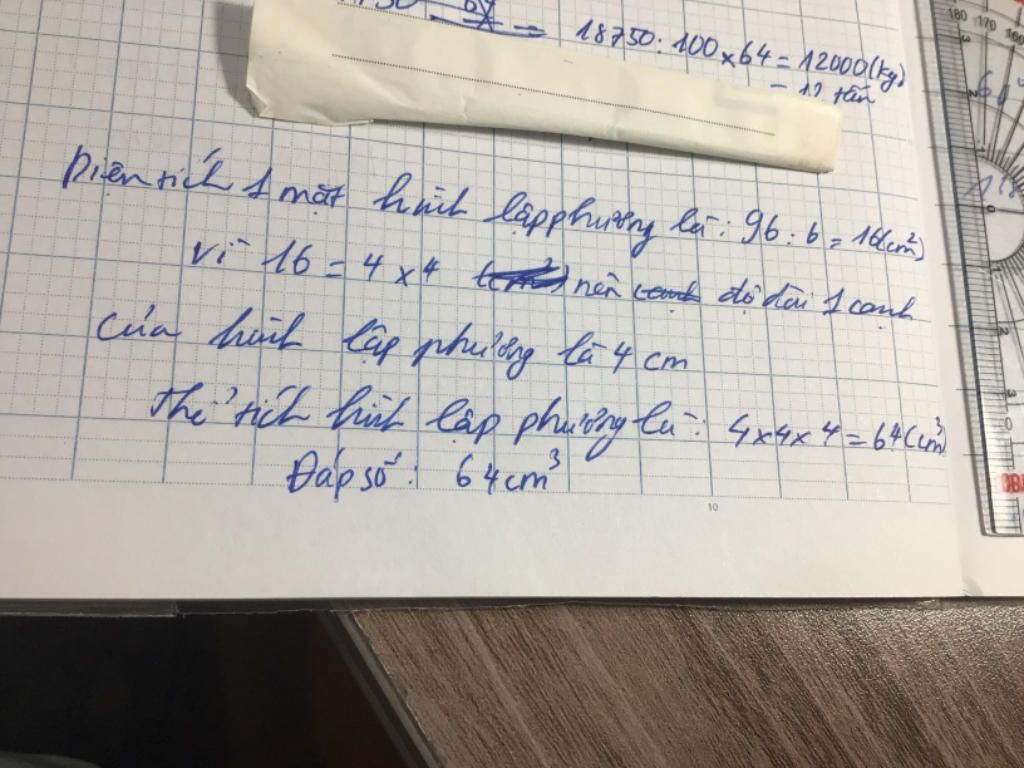 = 18750 : 100 x 64 = 12000 (kg)
= 12 tấn
Diện tích 1 mặt hình lập phương là : 96 : 6 = 16 (cm²)
Vì 16 = 4 x 4 nên độ dài 1 cạnh
của hình lập phương là 4 cm
Thể tích hình lập phương là : 4 x 4 x 4 = 64 (cm³)
Đáp số : 64 cm³
10
180 170 160